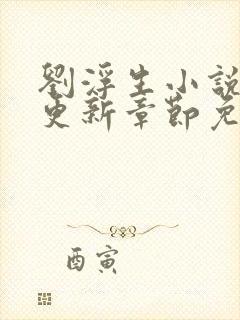 劉浮生小說
更新章節免
酉寅